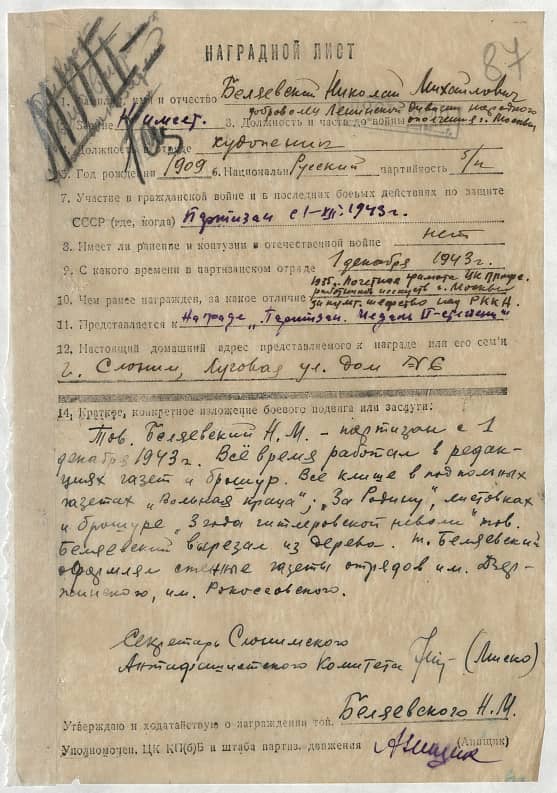 87
НАГРАДНОЙ ЛИСТ
1. Фамилия, имя и отчество Беляевский Николай Михайлович
2. Звание Не имеет. 3. Должность и часть до войны
добровольн. Ленинской дивизии народного
ополчения г. Москвы
4. Должность в отряде художник
5. Год рождения 1909 6. Национальн. Русский партийность б/п
7. Участие в гражданской войне и в последних боевых действиях по защите
СССР (где, когда) Партизан с 1-XII-1943 г.
8. Имеет ли ранение и контузии в отечественной войне нет
9. С какого времени в партизанском отряде 1 декабря 1943 г.
10. Чем ранее награжден, за какое отличие 1935 г. Почетная грамота ЦК Профс.
работников искусств г. Москвы
за культ. шефство над РККА.
11. Представляется к Награде „Партизан. Медаль II-степени"
12. Настоящий домашний адрес представляемого к награде или его семьи
г. Слоним, Луговая ул. Дом №6
14. Краткое, конкретное изложение боевого подвига или заслуги:
Тов. Беляевский Н.М. – партизан с 1
декабря 1943 г. Всё время работал в редак-
циях газет и брошюр. Все клише в подпольных
газетах „Вольная праца"; „За Родину", листовках
и брошюре „3 года гитлеровской неволи" тов.
Беляевский вырезал из дерева. т. Беляевский
оформлял стенные газеты отрядов им. Дзер-
жинского, им. Рокоссовского.
Секретарь Слонимского
Антифашистского Комитета (Лиско)
Утверждаю и ходатайствую о награждении тов. Беляевского Н.М.
Уполномочен. ЦК КП(б)Б и штаба партиз. движения (Анищик)